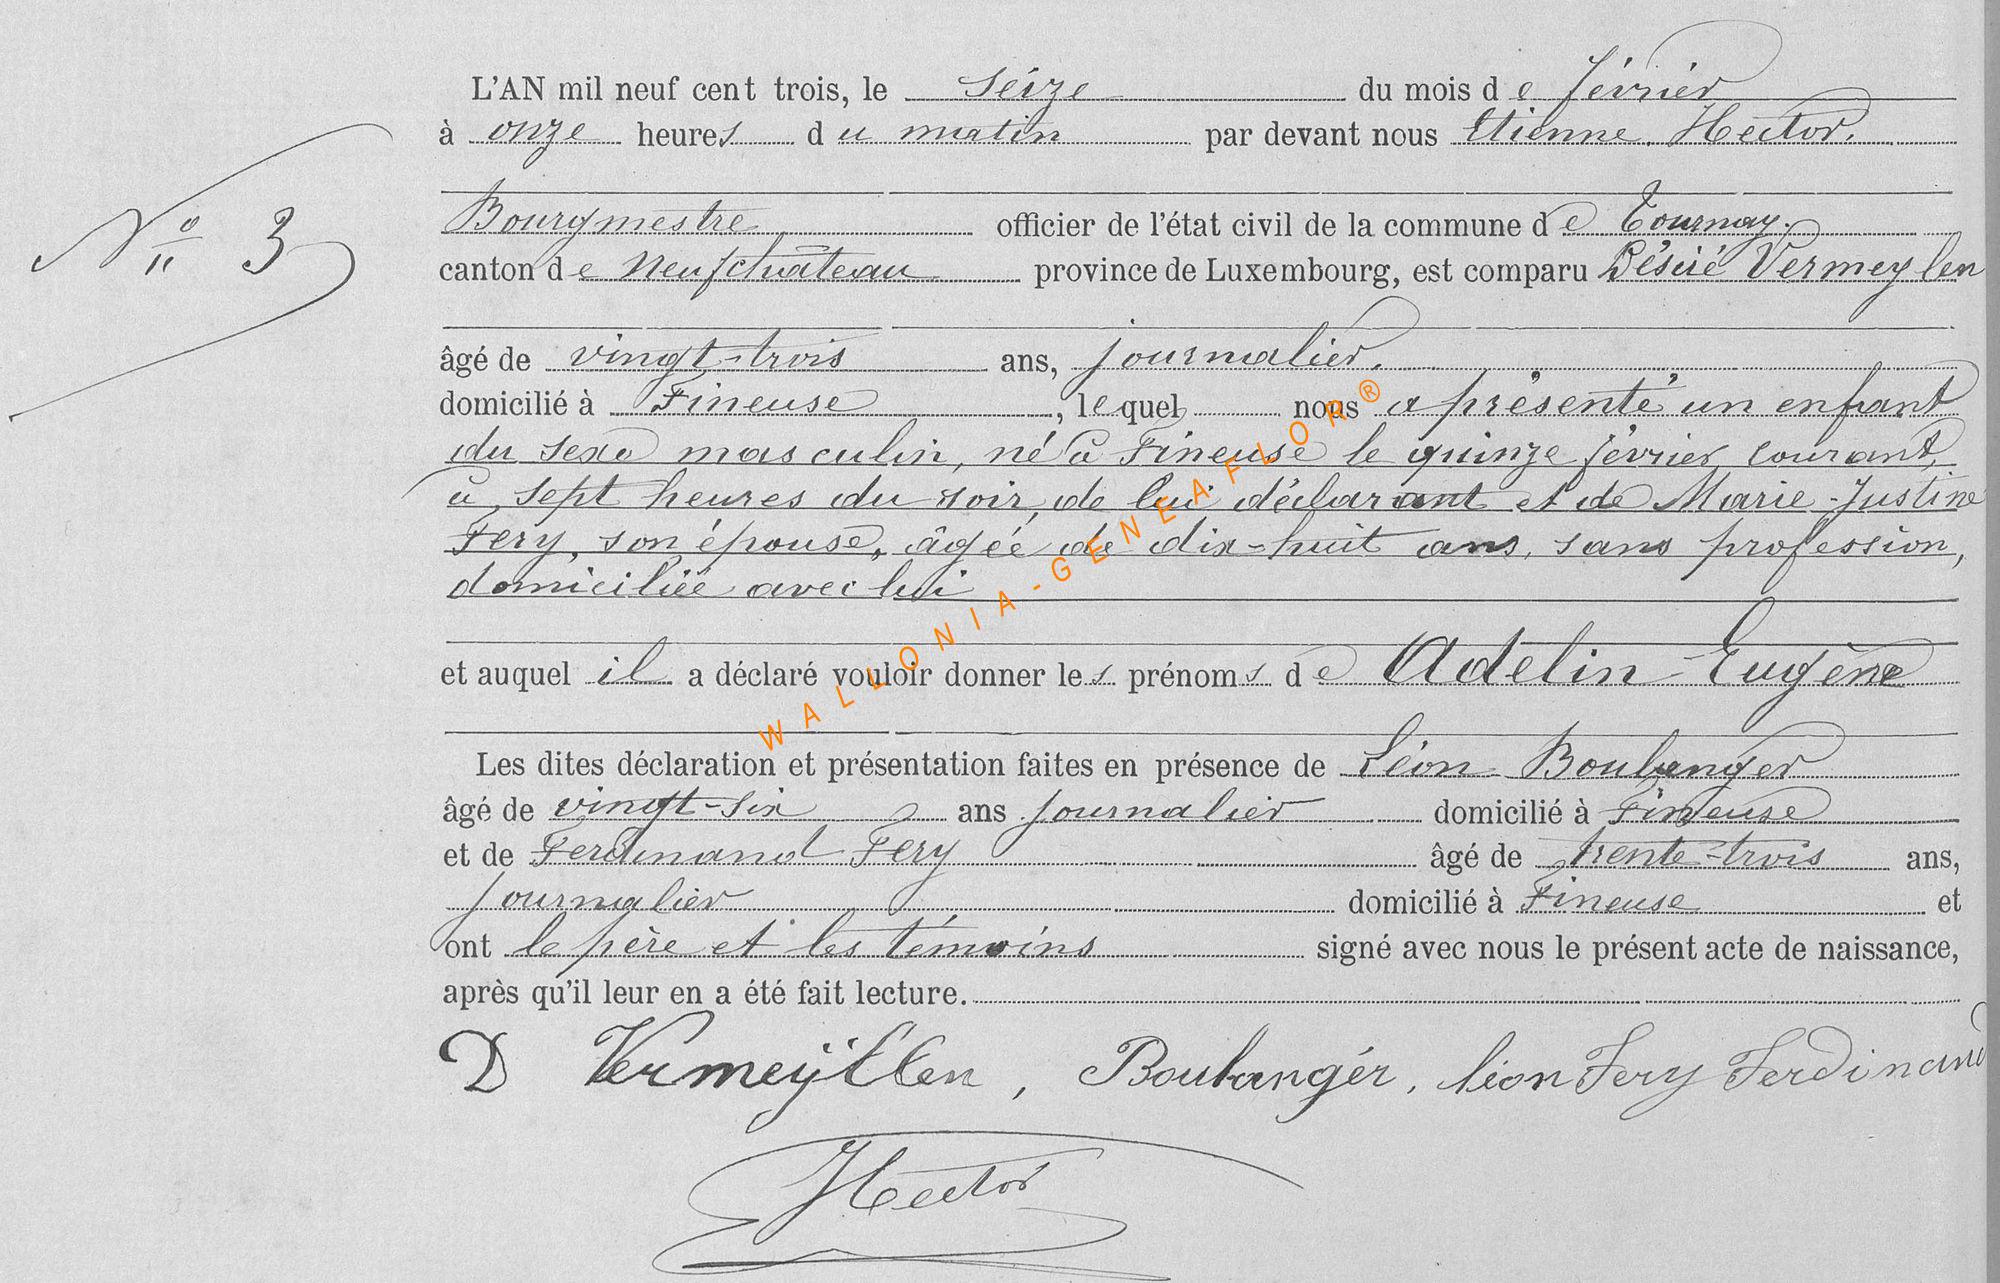 L'AN mil neuf cent trois, le seize du mois de février
à onze heures du matin par devant nous Etienne Hector.
Bourgmestre officier de l'état civil de la commune de Tournay.
N° 3
canton de Neufchâteau province de Luxembourg, est comparu Désiré Vermeylen
âgé de vingt-trois ans, journalier.
domicilié à Fineuse, lequel nous a présenté un enfant
du sexe masculin, né à Fineuse le quinze février courant,
à sept heures du soir, de lui déclarant et de Marie-Justine
Fery, son épouse, âgée de dix-huit ans, sans profession,
domiciliée avec lui
et auquel il a déclaré vouloir donner les prénoms de Adelin Eugène
Les dites déclaration et présentation faites en présence de Léon Boulanger
âgé de vingt-six ans journalier domicilié à Fineuse
et de Ferdinand Fery âgé de trente-trois ans,
journalier domicilié à Fineuse et
ont le père et les témoins signé avec nous le présent acte de naissance,
après qu'il leur en a été fait lecture.
D Vermeÿllen, Boulangér, léon Fery Ferdinand
Hector
WALLONIA-GENEAFLOR®